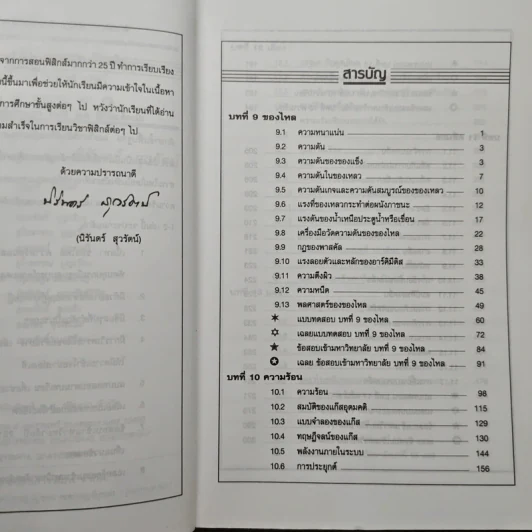 จากการสอนฟิสิกส์มากกว่า 25 ปี ทำการเรียบเรียง
นี้ขึ้นมาเพื่อช่วยให้นักเรียนมีความเข้าใจในเนื้อหา
การศึกษาชั้นสูงต่อๆ ไป หวังว่านักเรียนที่ได้อ่าน
มสำเร็จในการเรียนวิชาฟิสิกส์ต่อๆ ไป
ด้วยความปรารถนาดี
(นิรันดร์ สุวรัตน์)
สารบัญ
บทที่ 9 ของไหล
9.1 ความหนาแน่น 1
9.2 ความดัน 3
9.3 ความดันของของแข็ง 3
9.4 ความดันในของเหลว 7
9.5 ความดันเกจและความดันสมบูรณ์ของของเหลว 10
9.6 แรงที่ของเหลวกระทำต่อผนังภาชนะ 12
9.7 แรงดันของน้ำเหนือประตูน้ำหรือเขื่อน 17
9.8 เครื่องมือวัดความดันของของไหล 22
9.9 กฎของพาสคัล 28
9.10 แรงลอยตัวและหลักของอาร์คิมีดิส 33
9.11 ความตึงผิว 38
9.12 ความหนืด 45
9.13 พลศาสตร์ของของไหล 49
✶ แบบทดสอบ บทที่ 9 ของไหล 60
✡ เฉลยแบบทดสอบ บทที่ 9 ของไหล 72
★ ข้อสอบเข้ามหาวิทยาลัย บทที่ 9 ของไหล 84
✪ เฉลย ข้อสอบเข้ามหาวิทยาลัย บทที่ 9 ของไหล 91
บทที่ 10 ความร้อน
10.1 ความร้อน 98
10.2 สมบัติของแก๊สอุดมคติ 115
10.3 แบบจำลองของแก๊ส 129
10.4 ทฤษฎีจลน์ของแก๊ส 130
10.5 พลังงานภายในระบบ 144
10.6 การประยุกต์ 156